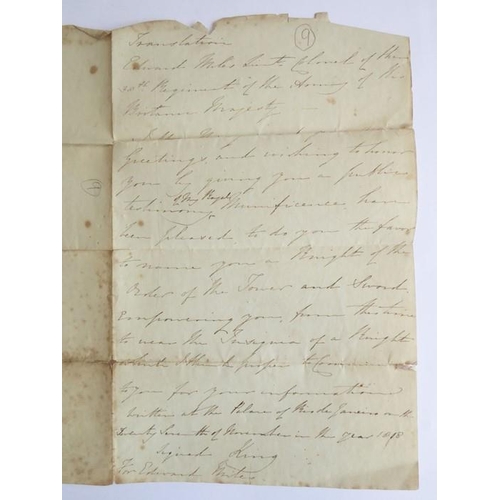 9
Translation
Edward Miles Lieut Colonel of the
38th Regiment of the Army of His
Britannic Majesty
Greetings, and wishing to honor
you by giving you a public
testimony of my Royal Munificence, have
been pleased to do you the favor
to name you a Knight of the
Order of the Tower and Sword,
empowering you from this time
to wear the Insignia of a Knight
which I think proper to Communicate
to you for your information
written at the Palace of Rio de Janeiro on the
of November in the year 1818
Signed King
For Edward Miles